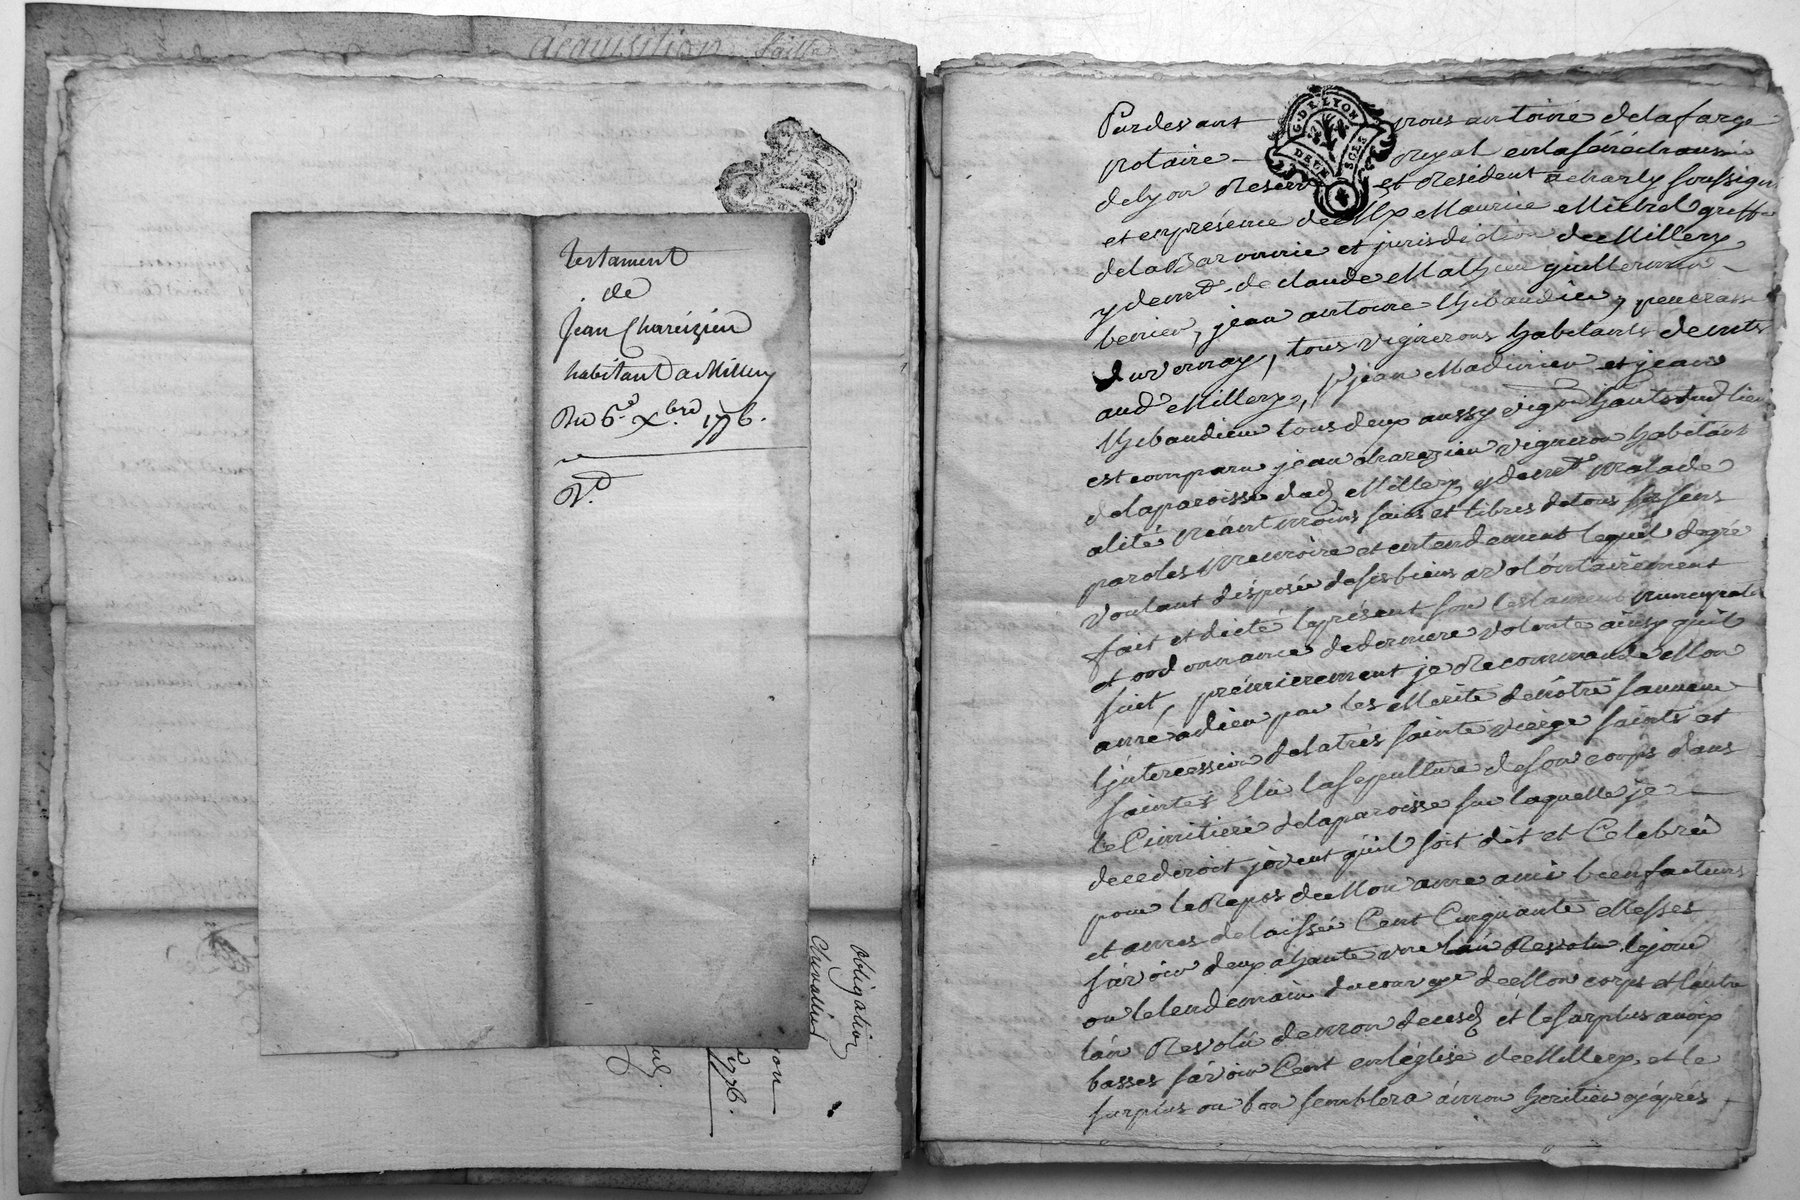 acquisition
Testament
de
Jean Chareizieu
habitant a Millery
Du 6.e Xbre 1776.
Obligation
Chevallier
1776.
G. DE LYON
DEUX SOLS
Pardevant nous antoine delafarge
notaire Royal en la sénéchaussée
de lyon Reservé et Resident a charly soussigné
et en présence de Me Maurice Michel greffier
de la Baronnie et jurisdiction de Millery
y demt. de claude Mathieu guillermin
benier, jean antoine thibaudier,
duvernay, tous vignerons habitants demts
aud Millery, jean et jean
thibaudier tous deux aussy vigrons hants dud lieu
est comparu jean charezieu vigneron habitant
de la paroisse dud Millery y demt malade
alité néantmoins sains et libres de tous ses sens
paroles memoire et entendement lequel degré
voulant disposé de ses biens a volontairement
fait et dicté le présent son testament nuncupatif
et ordonnance de derniere volonté ainsy quil
suit, premierement je Recommande Mon
ame a dieu par les Merite de nôtre sauveur
l'intercession de la très sainte vierge saints et
saintes Elû la sepulture de son corps dans
le Cimitiere de la paroisse sur laquelle je
decederoit jovent quil soit dit et Celebré
pour le Repos de Mon ame amis bienfacteurs
et ames delaissée Cent Cinquante Messes
savoir deux a haute voix lan Revolu le jour
ou le lendemain du convoye de Mon corps et l'autre
lan Revolu de mon deces, et le surplus a voix
basses savoir Cent en léglise de Millery, et le
surplus ou bon semblera a mon heritier cy après